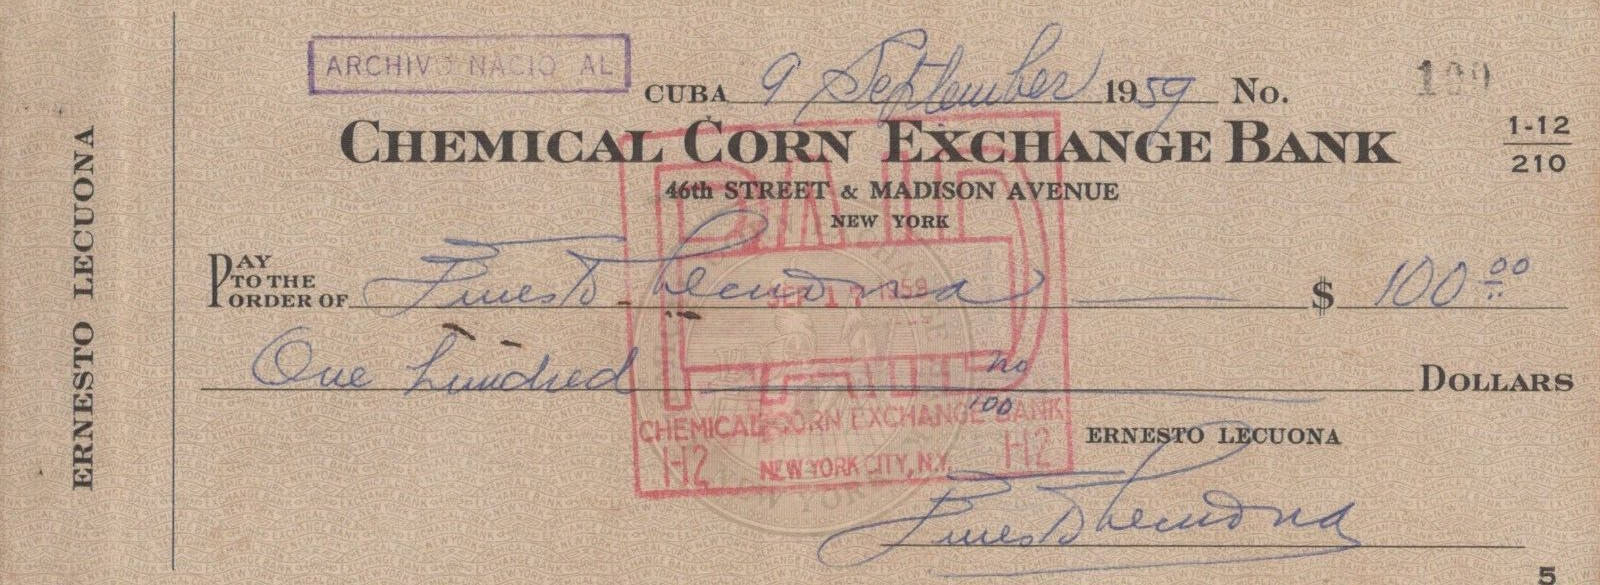 ARCHIVO NACIO AL
CUBA 9 September 1959 No. 100
CHEMICAL CORN EXCHANGE BANK
1-12
210
46th STREET & MADISON AVENUE
NEW YORK
PAY TO THE ORDER OF Ernesto Lecuona $ 100 00
One hundred no/100 DOLLARS
PAID
SEP 17 1959
CHEMICAL CORN EXCHANGE BANK
H2 NEW YORK CITY, N.Y. H2
ERNESTO LECUONA
Ernesto Lecuona
5
ERNESTO LECUONA